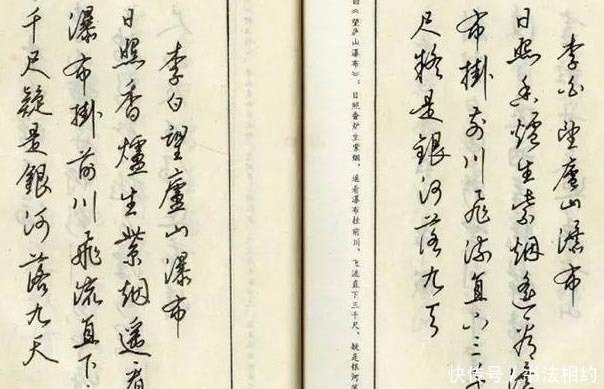 李白望廬山瀑布
日照香爐生紫烟遥看
布掛前川飛流直下三
尺疑是銀河落九天
白《望庐山瀑布》：日照香炉生紫烟，遥看瀑布挂前川，飞流直下三千尺，疑是银河
李白望廬山瀑布
日照香爐生紫烟遥看
瀑布掛前川飛流直下
千尺疑是銀河落九天
快传号/书法相约